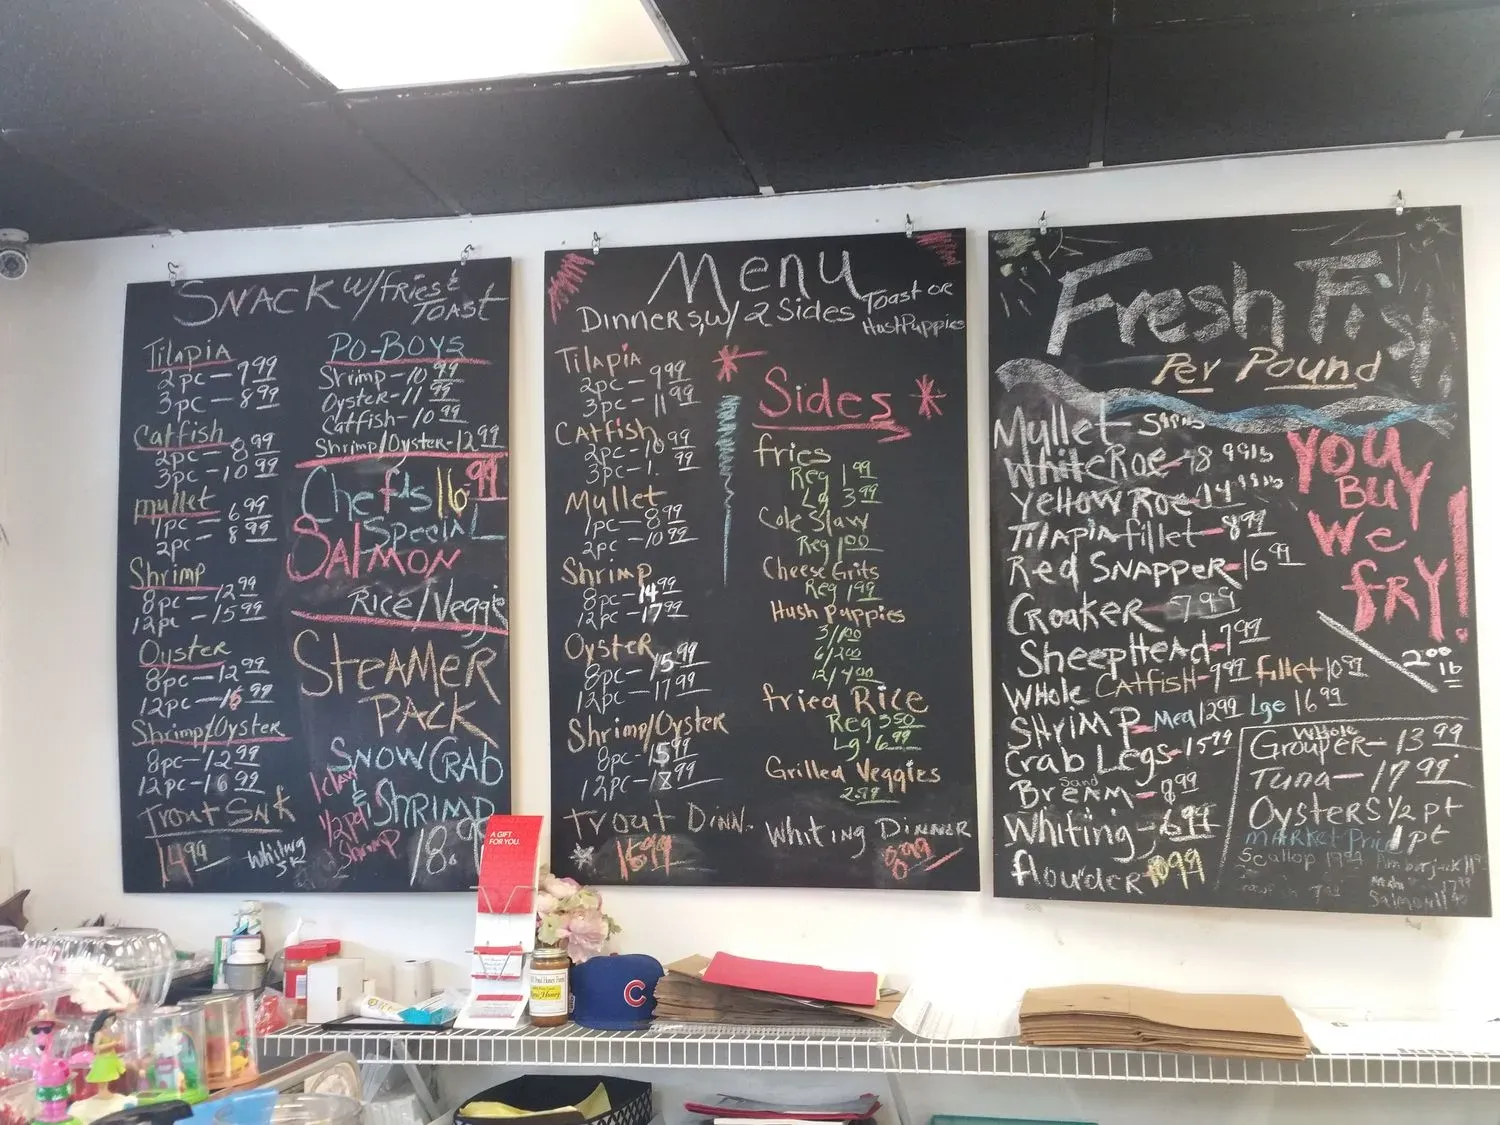 SNACK w/fries &
TOAST
Tilapia
2pc-7.99
3pc-8.99
Catfish
2pc-8.99
3pc-10.99
mullet
1pc-6.99
2pc-8.99
Shrimp
8pc-12.99
12pc-15.99
Oyster
8pc-12.99
12pc-16.99
Shrimp/Oyster
8pc-12.99
12pc-16.99
Trout Snk
14.99
Whiting
PO-BOYS
Shrimp-10.99
Oyster-11.99
Catfish-10.99
Shrimp/Oyster-12.99
Chef's 16.99
Special
SALMON
Rice/Veggie
STEAMER
PACK
SNOW CRAB
& SHRIMP
Shrimp
18.
Menu
Dinners, w/2 Sides Toast or
HushPuppies
Tilapia
2pc-9.99
3pc-11.99
Catfish
2pc-10.99
3pc-1. .99
Mullet
1pc-8.99
2pc-10.99
Shrimp
8pc-14.99
12pc-17.99
Oyster
8pc-15.99
12pc-17.99
Shrimp/Oyster
8pc-15.99
12pc-18.99
Trout Dinn.
16.99
Sides
fries
Reg 1.99
Lg 3.99
Cole Slaw
Reg 1.00
Cheese Grits
Reg 1.99
Hush Puppies
3/1.00
6/2.00
12/4.00
fried Rice
Reg 3.50
Lg 6.99
Grilled Veggies
2.99
Whiting Dinner
8.99
Fresh Fish
Per Pound
Mullet-5.99lb
White Roe-8.99lb
Yellow Roe-14.99lb
Tilapia fillet-8.99
Red Snapper-16.99
Croaker-7.99
SheepHead-7.99
Whole Catfish-9.99 fillet 10.99
Shrimp-Med 12.99 Lge 16.99
Crab Legs-15.99
Sand
Bream-8.99
Whiting-6.99
flounder 10.99
YOU
BUY
We
fRY!
2.00
lb
Whole
Grouper-13.99
Tuna-17.99
Oysters 1/2 pt
MARKET Price 1pt
Scallop
Salmon
A GIFT
FOR YOU.
C
Honey